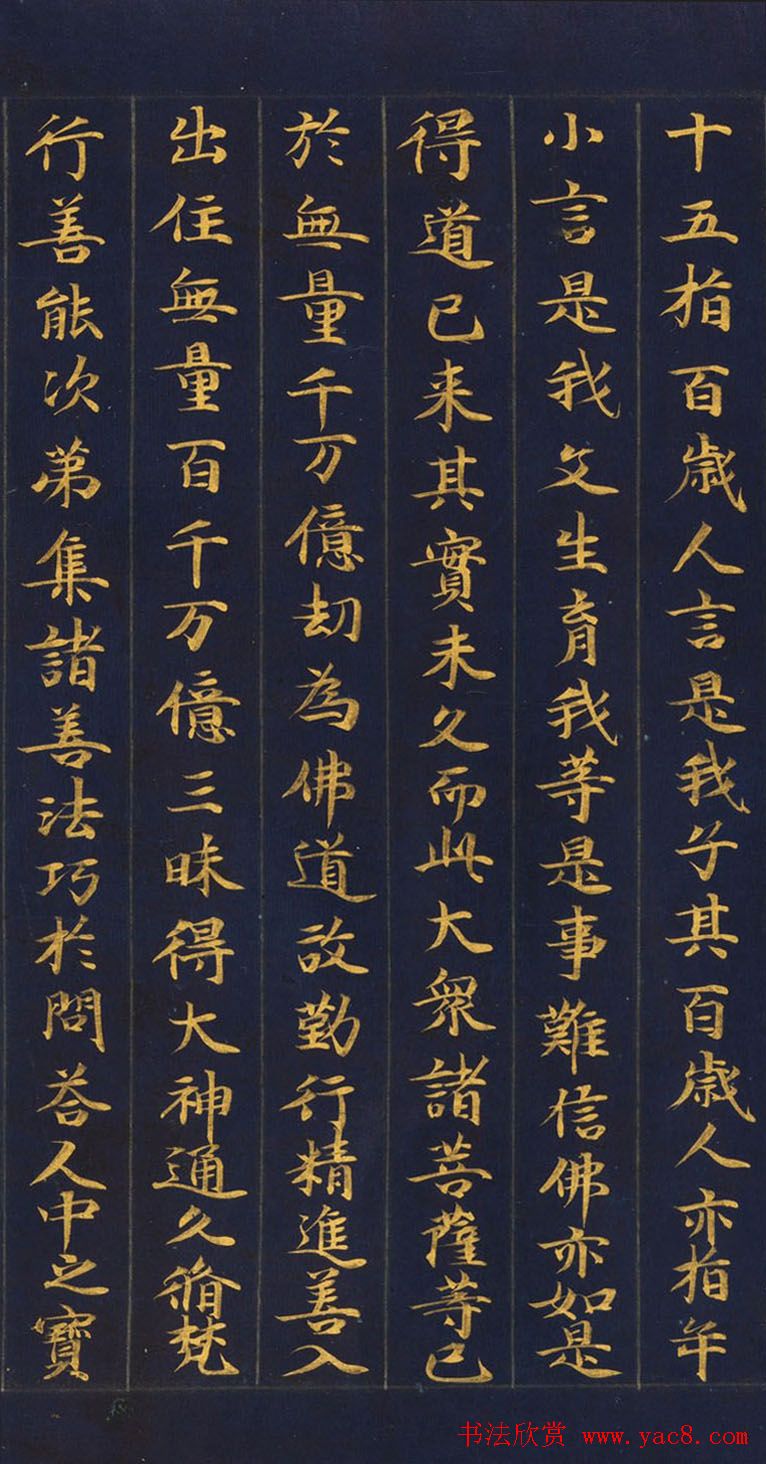 十五指百歲人言是我子其百歲人亦指年
小言是我父生育我等是事難信佛亦如是
得道已来其實未久而此大衆諸菩薩等已
於無量千万億劫為佛道故勤行精進善入
出住無量百千万億三昧得大神通久脩梵
行善能次第集諸善法巧於問荅人中之寶
书法欣赏 www.yac8.com